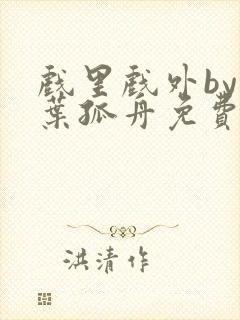 戲里戲外by
葉孤舟免費
洪清作